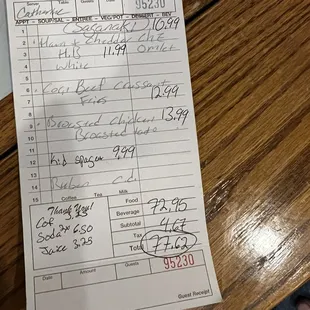 Server Table Guests Date
Catherine 95230
APPT - SOUP/SAL - ENTREE - VEG/POT - DESSERT - BEV
1 (Saganaki) 10.99
2 Ham + Cheddar CHE
3 H.B 11.99 Omlet
4 White
5
6 Corn Beef Croissant
7 Fries 12.99
8
9 Broasted Chicken 13.99
10 Broasted
11
12 kid spagee 9.99
13
14
15
Coffee Tea Milk
Thank You!
Cof 3.25
Soda 2x 6.50
Juice 3.25
Food 72.95
Beverage
Subtotal
Tax 4.67
Total 77.62
Date Amount Guests 95230
Guest Receipt